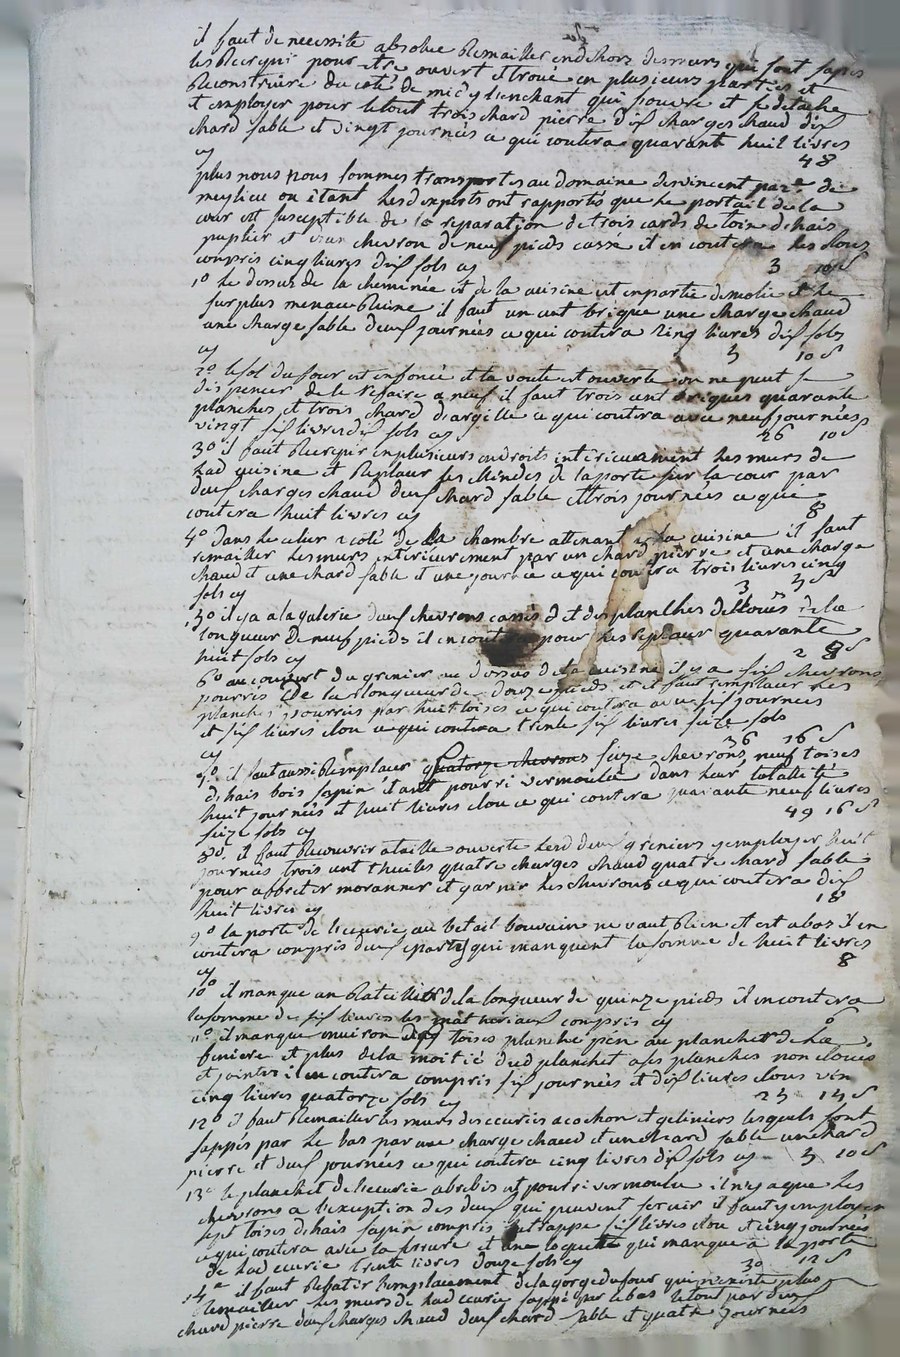 il faut de necessite absolue Remailler en dehors des murs qui sont sapés
les Recrepir pour etre ouvert et troué en plusieurs parties et
Reconstruire du coté de midy le enchant qui souvre et se detache
et employer pour le tout trois chard pierre dix charges chaud dix
chard sable et vingt journées ce qui coutera quarante huit livres
cy 48
plus nous nous sommes transportes au domaine des vincent par de
meylieu ou étant les experts ont rapportés que le portail de la
cour est susceptible de reparation de trois cards de toise dehais
puplier et d'un chevron de neuf pieds casse il en coutera les clous
compris cinq livres dix sols cy 10 S
1° Le dessus de la cheminée et de la cuisine est en partie demolie et le
surplus menace Ruine il faut un cent brique une charge chaud
une charge sable deux journées ce qui coutera cinq livres dix sols
cy 5 10 S
2° le sol du four est enfoncé et la voute est ouverte on ne peut se
dispenser de le Refaire a neuf il faut trois cent briques quarante
planches et trois chard d'argille ce qui coutera avec neuf journées
vingt six livres dix sols cy 26 10 S
3° il faut Recrepir en plusieurs endroits interieurement les murs de
lad cuisine et Replacer les de la porte sur la cour par
deux charges chaud deux chard sable et trois journées ce que
coutera huit livres cy 8
4° dans le celier a coté de la chambre attenant a la cuisine il faut
remailler les murs interieurement par un chard pierre et une charge
chaud et une chard sable et une journée ce qui coutera trois livres cinq
sols cy 3 5 S
5° il y a a la galerie deux chevrons cassés et des planches declouées de la
longueur de neuf pieds il en coutera pour les Replacer quarante
huit sols cy 2 8 S
6° au couvert du grenier au dessus de la cuisine il y a six chevrons
pourris de la longueur de douze pieds et il faut remplacer les
planches pourries par huit toises ce qui coutera avec six journées
et six livres clou ce qui coutera trente six livres seize sols
cy 36 16 S
7° il faut aussi Remplacer quatorze chevrons seize chevrons, neuf toises
dehais bois sapin étant pourri vermoulu dans leur totallité
huit journées et huit livres clou ce qui coutera quarante neuf livres
seize sols cy 49 16 S
8° il faut Recouvrir a taille ouverte lesd deux greniers y employer huit
journées trois cent thuiles quatre charges chaud quatre chard sable
pour affretter moranner et garnir les chevrons ce qui coutera dix
huit livres cy 18
9° la porte de l'ecurie au betail bouvain ne vaut Rien et est abas il en
coutera compris deux epartz qui manquent la somme de huit livres
cy 8
10° il manque un Ratellier de la longueur de quinze pieds il en coutera
la somme de six livres les mathériaux compris cy 6
11° il manque environ toises planche pin au plancher de la
feniere et plus de la moitié dud planchet a ses planches non clouées
et jointes il en coutera compris six journées et dix livres clous vin
cinq livres quatorze sols cy 25 14 S
12° il faut Remailler les murs des ecuries a cochon et geliniers lesquels sont
sappés par le bas par une charge chaud et un chard sable un chard
pierre et deux journées ce qui coutera cinq livres dix sols cy 5 10 S
13° le planchet de l'ecurie a brebis est pourri vermoulu il n'y a que les
chevrons a l'exception des deux qui peuvent servir il faut y employer
sept toises dehais sapin compris six livres clou et cinq journées
ce qui coutera avec la serrure et une loquette qui manque a la porte
de lad ecurie trente livres douze sols cy 30 12 S
14° il faut Rebatir l'emplacement de la gorge du four qui n'existe plus
Remailler les murs de lad ecurie sappé par le bas le tout par deux
chard pierre deux charges chaud deux chard sable et quatre journées